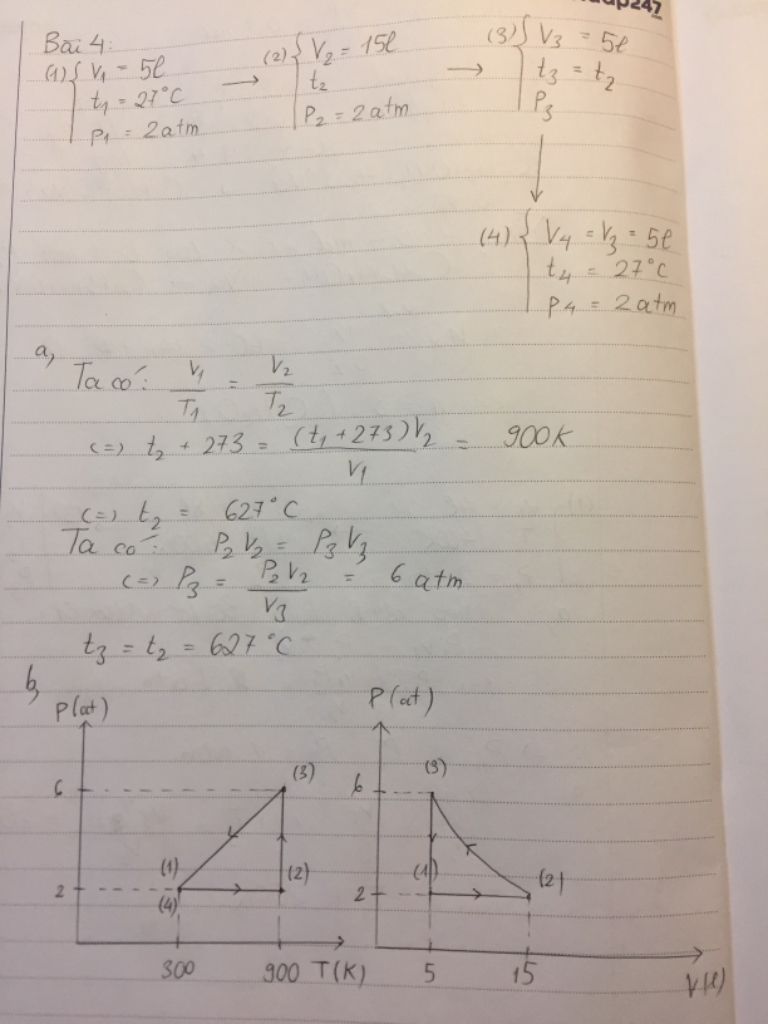 Bài 4:
(1) { V1 = 5l
t1 = 27°C
P1 = 2atm
→
(2) { V2 = 15l
t2
P2 = 2atm
→
(3) { V3 = 5l
t3 = t2
P3
↓
(4) { V4 = V3 = 5l
t4 = 27°C
P4 = 2atm
a,
Ta có: V1/T1 = V2/T2
(=) t2 + 273 = (t1 + 273)V2/V1 = 900K
(=) t2 = 627°C
Ta có: P2V2 = P3V3
(=) P3 = P2V2/V3 = 6 atm
t3 = t2 = 627°C
b,
P(at)
6
(3)
(1)
(2)
2
(4)
300 900 T(K)
P(at)
(3)
6
(1)
(2)
2
5 15 V(l)